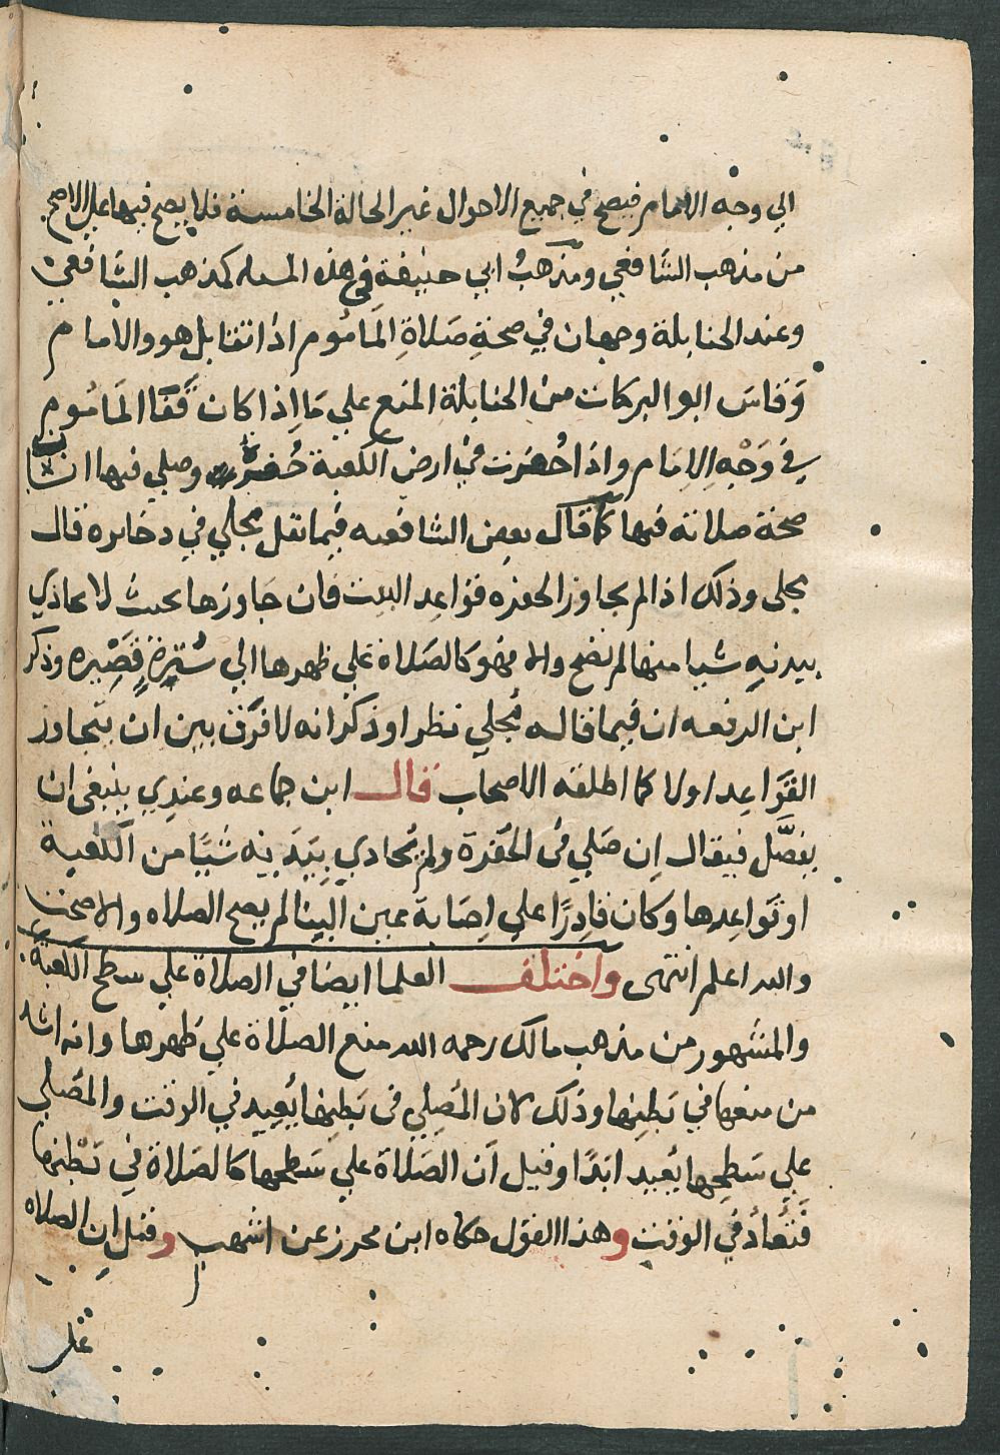 الي وجه الامام فيصح في جميع الاحوال غير الحالة الخامسة فلا يصح فيها علي الاصح
من مذهب الشافعي ومذهب ابي حنيفة في هذه المسله كمذهب الشافعي
وعند الحنابلة وجهان في صحة صلاة المأموم اذا تقابل هو والامام
وقاس ابو البركات من الحنابلة المنع علي ما اذا كان قفا المأموم
في وجه الامام واذا احفرت في ارض الكعبة حفرة وصلي فيها انسان
صحة صلاته فيها كما قال بعض الشافعيه فيما نقل مجلي في دخايره قال
مجلي وذلك اذا لم يجاوز الحفره قواعد البيت فان جاوزها بحيث لا يحاذي
ببدنه شيا منها لم تصح والا فهو كالصلاة علي ظهرها الي سترة قصيره وذكر
ابن الرفعه ان فيما قاله مجلي نظرا وذكر انه لا فرق بين ان يتجاوز
القواعد اولا كما اطلقه الاصحاب قال ابن جماعه وعندي ينبغي ان
يفصل فيقال ان صلي في الحفرة ولم يحادي ببدنه شيا من الكعبة
او قواعدها وكان قادرا علي اصابة عين البينا لم يصح الصلاه والا صحت
والله اعلم انتهى واختلف العلما ايضا في الصلاة علي سطح الكعبة
والمشهور من مذهب مالك رحمه الله منع الصلاة علي ظهرها وانه اشد
من منعها في بطنها وذلك لان المصلي في بطنها يعيد في الوقت والمصلي
علي سطحها يعيد ابدا وقيل ان الصلاة علي سطحها كالصلاة في بطنها
فتعاد في الوقت وهذا القول حكاه ابن محرز عن اشهب وقيل ان الصلاه
علي